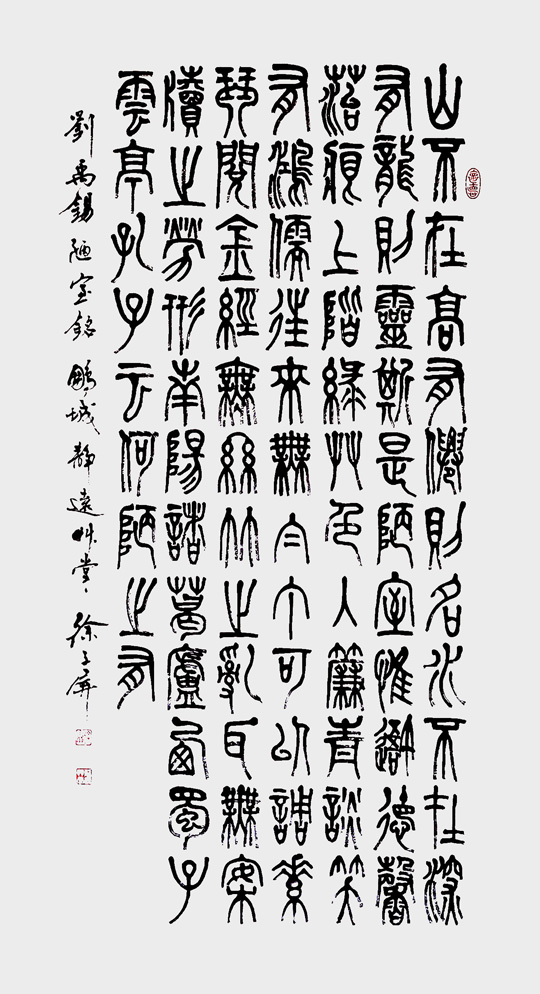 山不在高有僊則名水不在深
有龍則靈斯是陋室惟吾德馨
菭痕上階綠艸色入簾青談笑
有鴻儒往來無白丁可以調素
琴閱金經無絲竹之亂耳無案
牘之勞形南陽諸葛廬西蜀子
雲亭孔子云何陋之有
劉禹錫陋室銘 鵬城靜遠艸堂 徐子屏